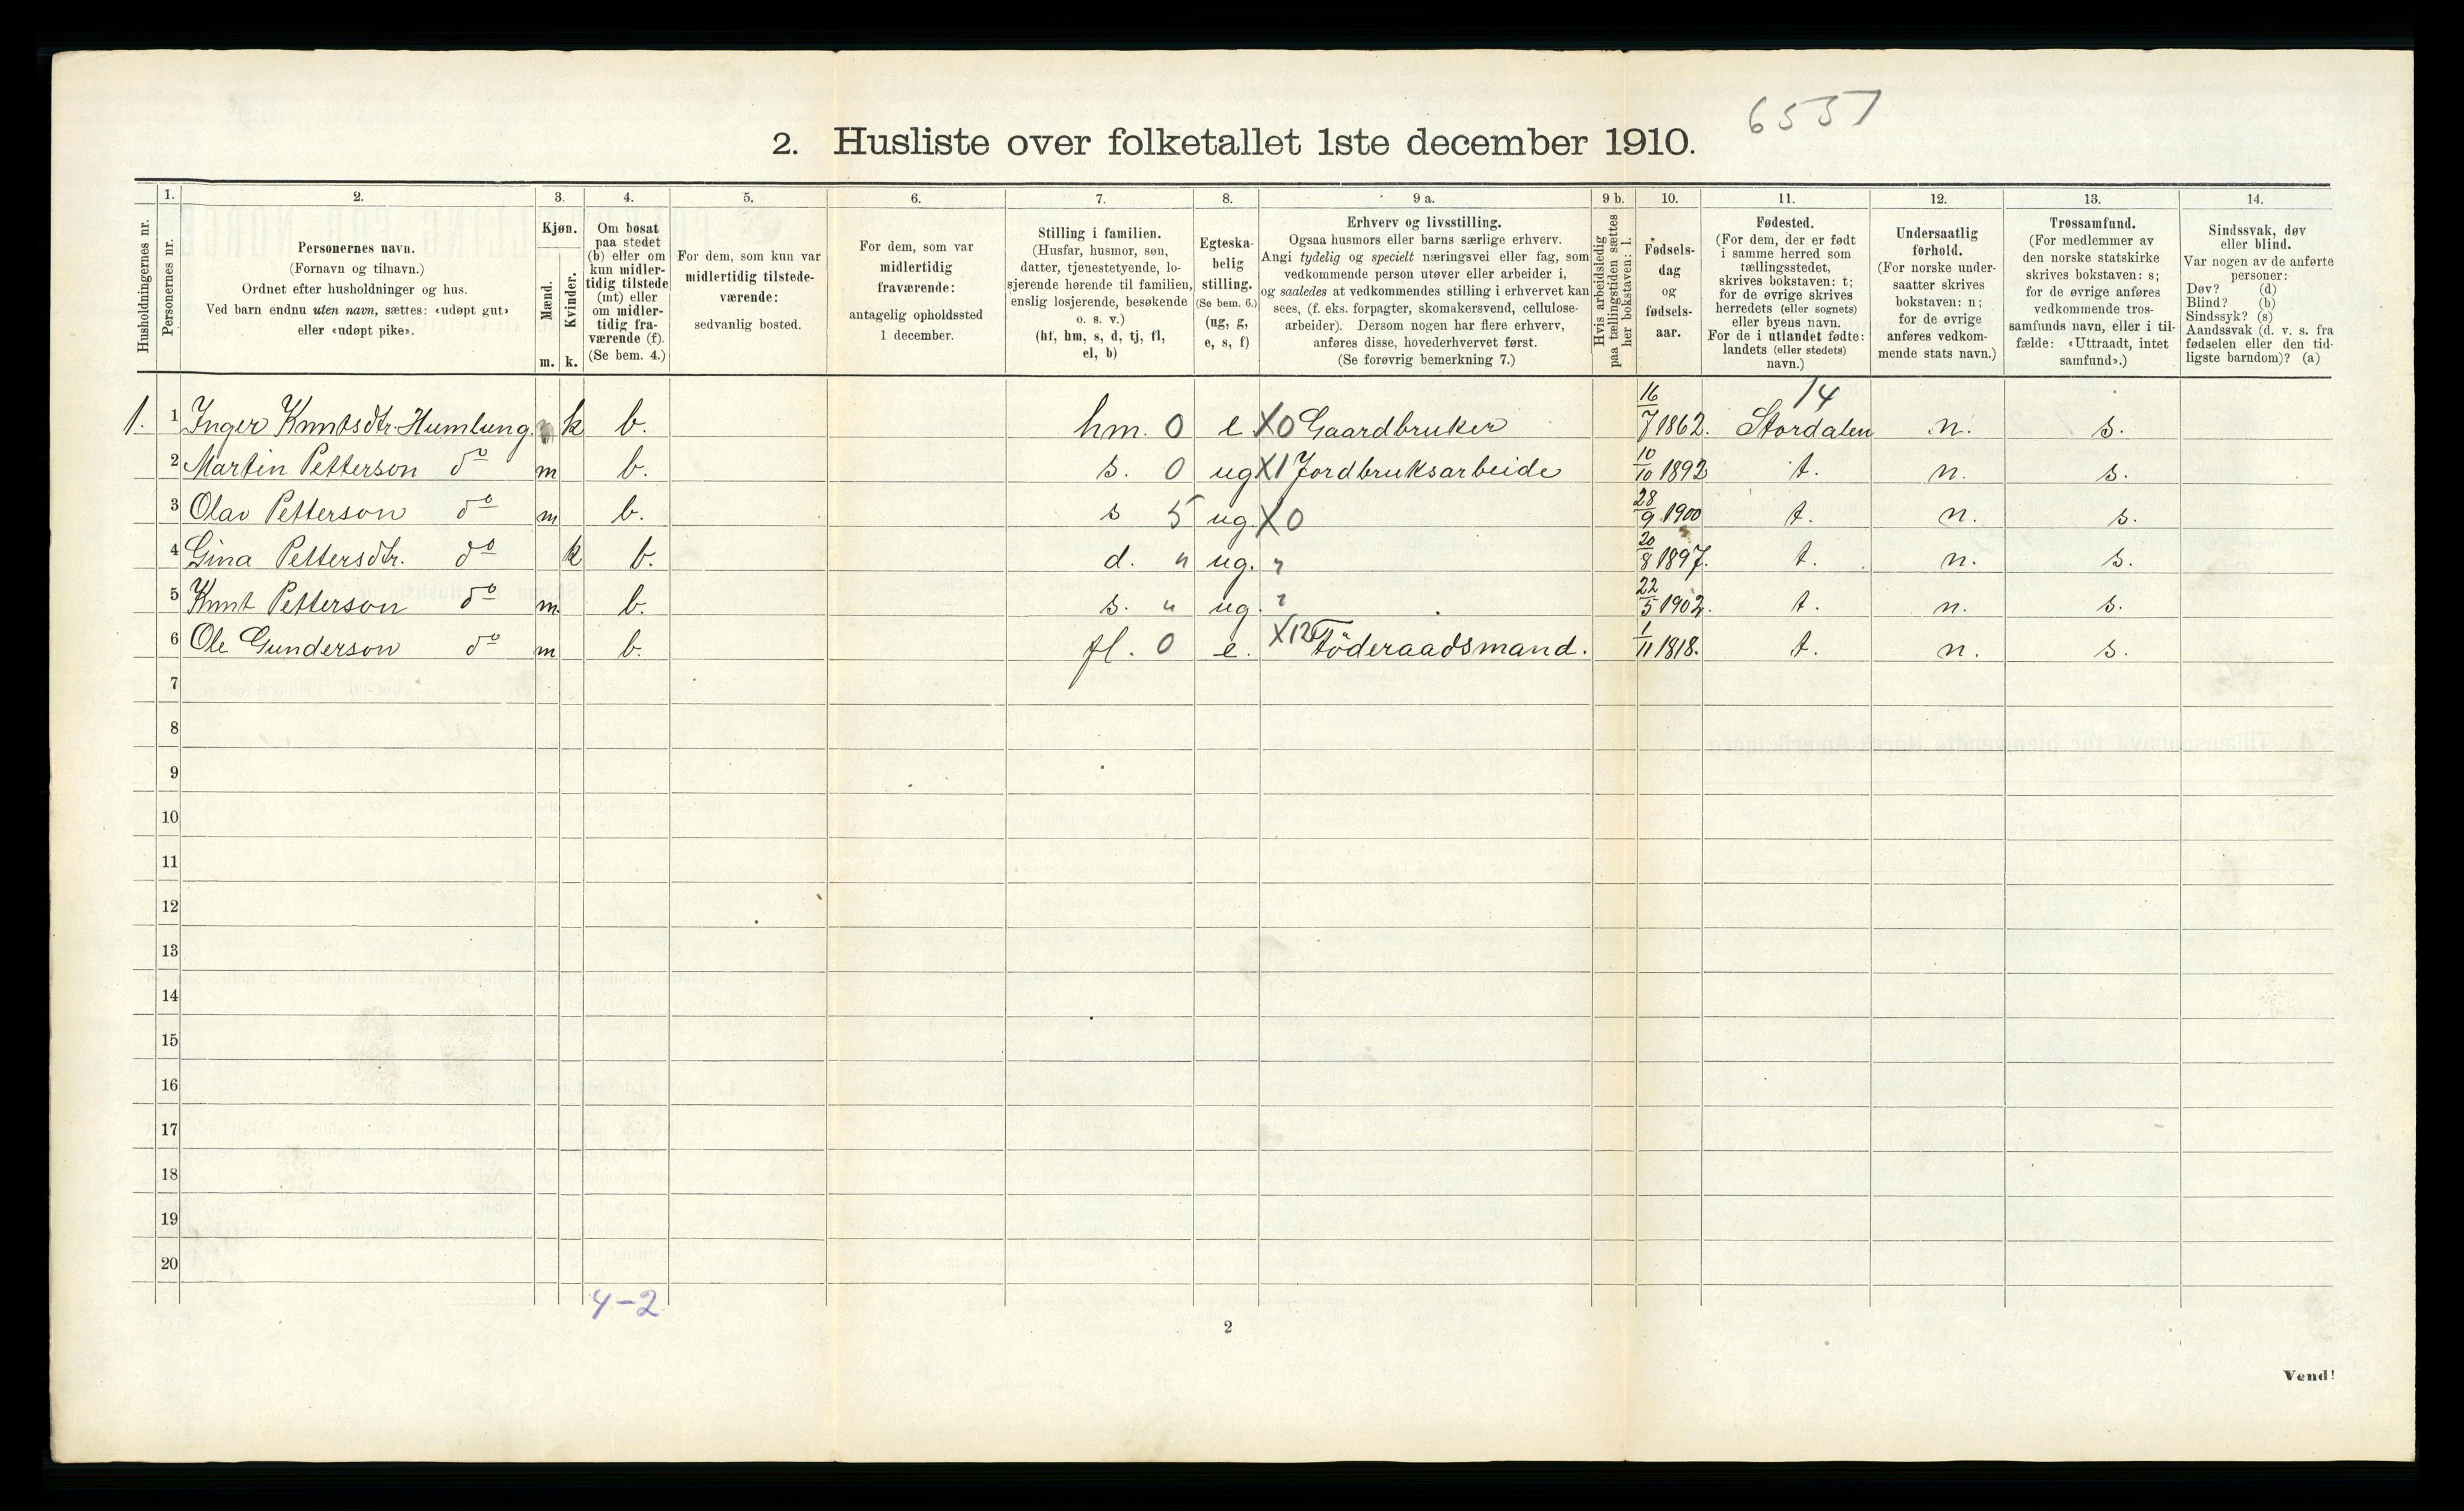 6557
2. Husliste over folketallet 1ste december 1910.
Husholdningernes nr.
1.
Personernes nr.
2.
Personernes navn.
(Fornavn og tilnavn.)
Ordnet efter husholdninger og hus.
Ved barn endnu uten navn, sættes: «udøpt gut»
eller «udøpt pike».
3.
Kjøn.
Mænd.
Kvinder.
m. k.
4.
Om bosat
paa stedet
(b) eller om
kun midler-
tidig tilstede
(mt) eller
om midler-
tidig fra-
værende (f).
(Se bem. 4.)
5.
For dem, som kun var
midlertidig tilstede-
værende:
sedvanlig bosted.
6.
For dem, som var
midlertidig
fraværende:
antagelig opholdssted
1 december.
7.
Stilling i familien.
(Husfar, husmor, søn,
datter, tjenestetyende, lo-
sjerende hørende til familien,
enslig losjerende, besøkende
o. s. v.)
(hf, hm, s, d, tj, fl,
el, b)
8.
Egteska-
belig
stilling.
(Se bem. 6.)
(ug, g,
e, s, f)
9 a.
Erhverv og livsstilling.
Ogsaa husmors eller barns særlige erhverv.
Angi tydelig og specielt næringsvei eller fag, som
vedkommende person utøver eller arbeider i,
og saaledes at vedkommendes stilling i erhvervet kan
sees, (f. eks. forpagter, skomakersvend, cellulose-
arbeider). Dersom nogen har flere erhverv,
anføres disse, hovederhvervet først.
(Se forøvrig bemerkning 7.)
9 b.
Hvis arbeidsledig
paa tællingstiden sættes
her bokstaven: l.
10.
Fødsels-
dag
og
fødsels-
aar.
11.
Fødested.
(For dem, der er født
i samme herred som
tællingsstedet,
skrives bokstaven: t;
for de øvrige skrives
herredets (eller sognets)
eller byens navn.
For de i utlandet fødte:
landets (eller stedets)
navn.)
12.
Undersaatlig
forhold.
(For norske under-
saatter skrives
bokstaven: n;
for de øvrige
anføres vedkom-
mende stats navn.)
13.
Trossamfund.
(For medlemmer av
den norske statskirke
skrives bokstaven: s;
for de øvrige anføres
vedkommende tros-
samfunds navn, eller i til-
fælde: «Uttraadt, intet
samfund».)
14.
Sindssvak, døv
eller blind.
Var nogen av de anførte
personer:
Døv? (d)
Blind? (b)
Sindssyk? (s)
Aandssvak (d. v. s. fra
fødselen eller den tid-
ligste barndom)? (a)
14
1. 1 Inger Knutsdtr. Humlung. k b. hm. 0 e X0 Gaardbruker 16/7 1862. Stordalen n. s.
2 Martin Petterson do m b. s. 0 ug X1 Jordbruksarbeide 10/10 1892 t. n. s.
3 Olav Petterson do m b. s 5 ug. X0 28/9 1900 t. n. s.
4 Gina Pettersdtr. do k b. d. " ug. " 20/8 1897. t. n. s.
5 Knut Petterson do m. b. s. " ug. " 22/5 1902. t. n. s.
6 Ole Gunderson do m b. fl. 0 e. X12 Föderaadsmand. 1/11 1818. t. n. s.
7
8
9
10
11
12
13
14
15
16
17
18
19
20
4-2
2
Vend!